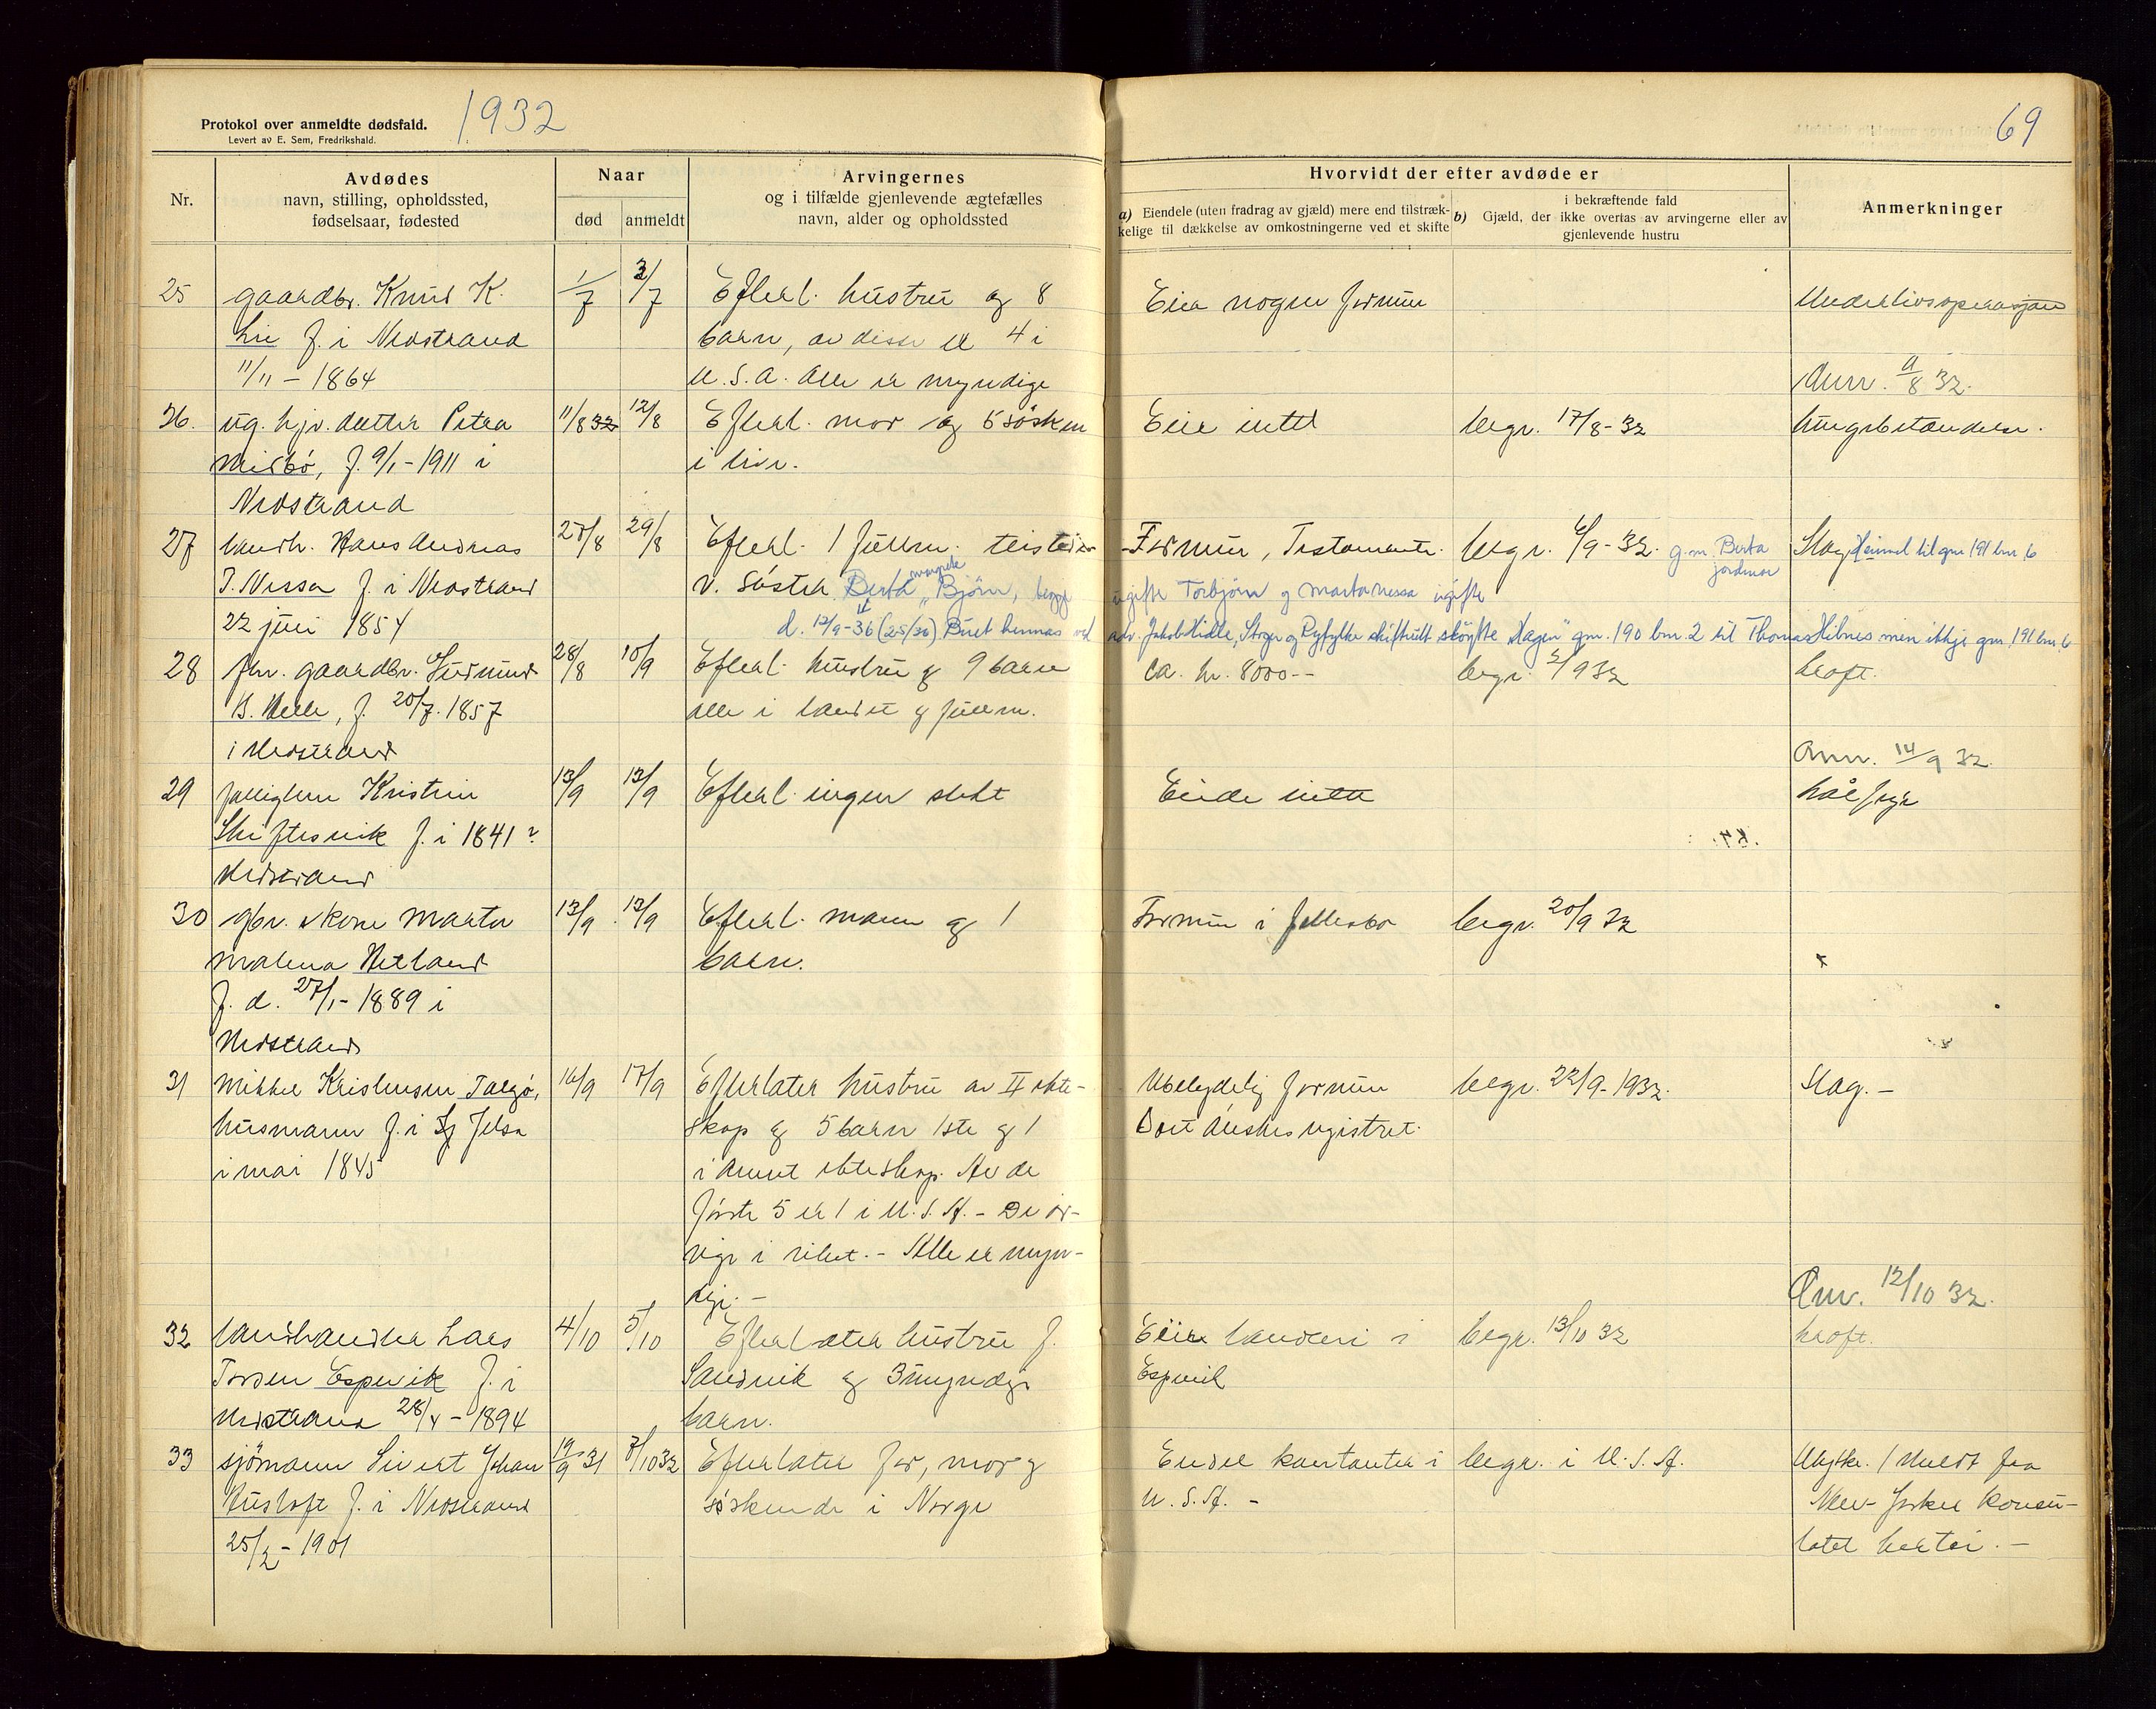 Protokol over anmeldte dødsfald.
Levert av E. Sem, Fredrikshald.
1932
69
Nr.
Avdødes
navn, stilling, opholdssted,
fødselsaar, fødested
Naar
død
anmeldt
Arvingernes
og i tilfælde gjenlevende ægtefælles
navn, alder og opholdssted
Hvorvidt der efter avdøde er
a) Eiendele (uten fradrag av gjæld) mere end tilstræk-
kelige til dækkelse av omkostningerne ved et skifte
i bekræftende fald
b) Gjæld, der ikke overtas av arvingerne eller av
gjenlevende hustru
Anmerkninger
25 gaardbr. Knud K. 1/7 3/7 Efterl. hustru og 8 Eier nogen formue Underlivsoperasjon
Lie f. i Nedstrand barn, av disse er 4 i
11/11 - 1864 U.S.A. Alle er myndige Anm. 9/8 32.
26. ug. hjv. datter Petra 11/8 32 12/8 Efterl. mor og 5 søsken Eier intet begr. 17/8-32 lungebetændelse.
Midbø, f. 9/1-1911 i i live.
Nedstrand
27 landh. Hans Andreas 27/8 29/8 Efterl. 1 fullm. - Formue, Testamente. begr. 6/9-32. g.m. Berta Slag Heimel til gnr 191 bnr 6
T. Nessa f. i Nedstrand v. søster Berta Bjørn, begge ugifte Torbjørn og Marta Nessa ugifte
22 juli 1854 d. 12/9-36 (25/36) Buet hennas ved adv. Jakob Hidle, Stvgr og Ryfylke skifterett skøyfte "Hagen" gnr. 190 bnr. 2 til Thomas Hibnes men ikkje gnr. 191 bnr. 6
28 fhv. gaardbr. Gudmund 28/8 10/9 Efterl. hustru og 9 barn ca. kr. 8000-- begr. 2/9 32 kræft.
B. Helle, f. 20/7. 1857 alle i landet og fullm.
i Nedstrand Anm. 14/9 32.
29 fattiglem Kristine 13/9 13/9 Efterl. ingen slekt Eiede intet
Skiftesvik f. i 1841?
Nedstrand
30 gbr. kone Marta 13/9 13/9 Efterl. mann og 1 Formue i fellesbo begr. 20/9 32
Malena Hetland barn.
f. d. 27/1-1889 i
Nedstrand
31 Mikkel Kristensen Talgø, 16/9 17/9 Efterlater hustru av II ekte- Ubetydelig formue begr. 22/9-1932. Slag.-
husmann f. i Jelsa skap og 5 barn 1ste og 1
i mai 1845 i annet ekteskap. Av de
første 5 er 1 i U.S.A. - De øv-
rige i riket.- Alle er myn-
dige.- Anm. 12/10 32.
32 landhandler Lars 4/10 5/10 Efterlater hustru f. Eier landeri i begr. 13/10 32 kræft.
Espevik f. i Sandvik og 3 umyndige Espevik
Nedstrand 28/4-1894 barn.
33 sjømann Sivert Johan 19/9 31 7/10 32 Efterlater far, mor og Endel kontanter i begr. i U.S.A. Ulykke. / Meldt fra
Husloft f. i Nedstrand søskende i Norge U.S.A. - New-Yorker konsu-
25/2-1901 latet -